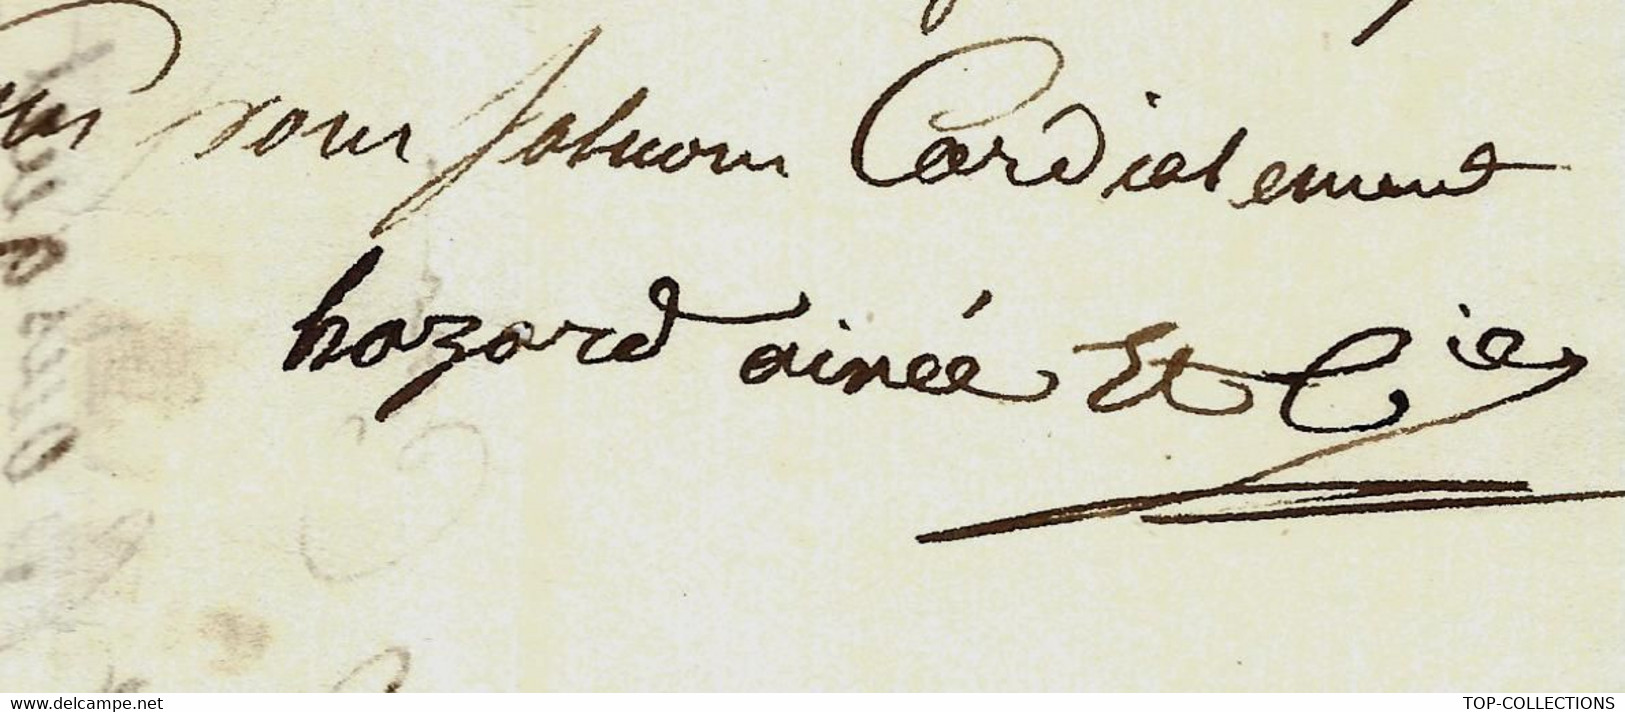 vous saluons Cordialement
hazard ainée Et Cie
delcampe.net
TOP-COLLECTIONS